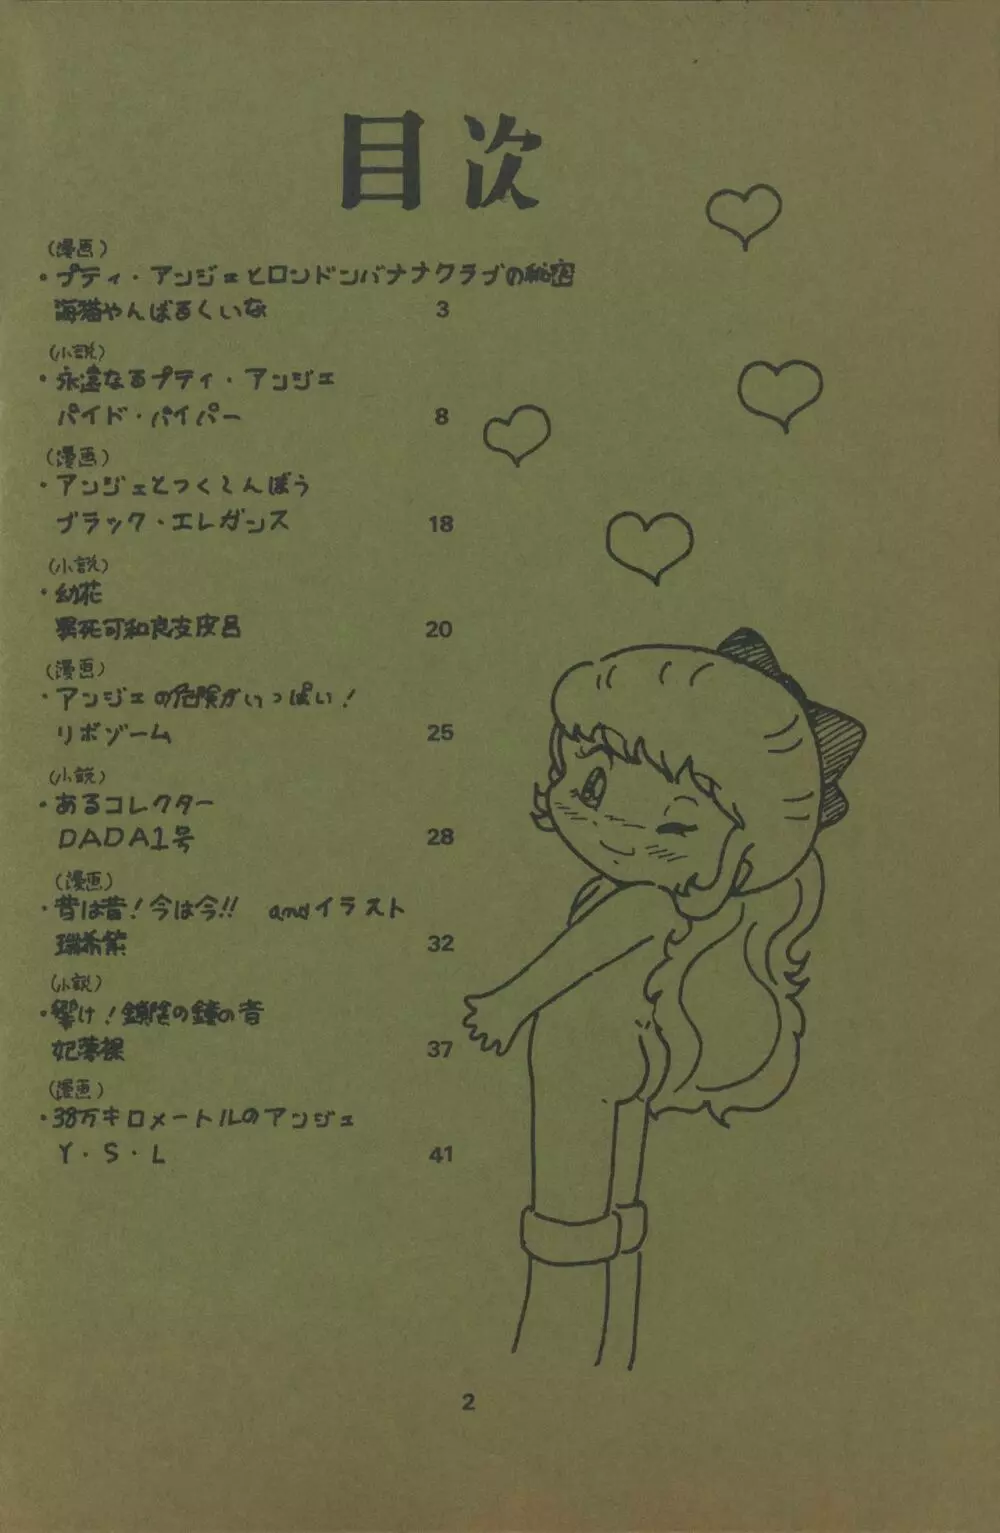 目次
(漫画)
・プティ・アンジェとロンドンバナナクラブの秘密
海猫やんばるくいな 3
(小説)
・永遠なるプティ・アンジェ
パイド・パイパー 8
(漫画)
・アンジェとつくしんぼう
ブラック・エレガンス 18
(小説)
・幼花
異死可和良支皮呂 20
(漫画)
・アンジェの危険がいっぱい！
リボゾーム 25
(小説)
・あるコレクター
DADA1号 28
(漫画)
・昔は昔！今は今!! andイラスト
瑞希紫 32
(小説)
・響け！鎖陰の鐘の音
妃夢裸 37
(漫画)
・38万キロメートルのアンジェ
Y・S・L 41
2